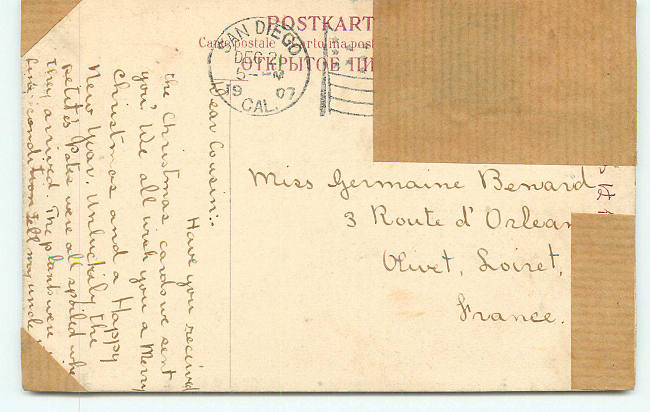 POSTKART
Carte postale Cartolina post
ОТКРЫТОЕ ПИ
SAN DIEGO
DEC 21
5 - M
19 07
CAL.
Dear Cousin:-
Have you received
the Christmas cards we sent
you? We all wish you a Merry
Christmas and a Happy
New Year. Unluckily the
petites pates were all spoiled whe
They arrived. The plants were
fine condition tell my uncle
Miss Germaine Benard
3 Route d' Orlean
Olivet, Loiret,
France.